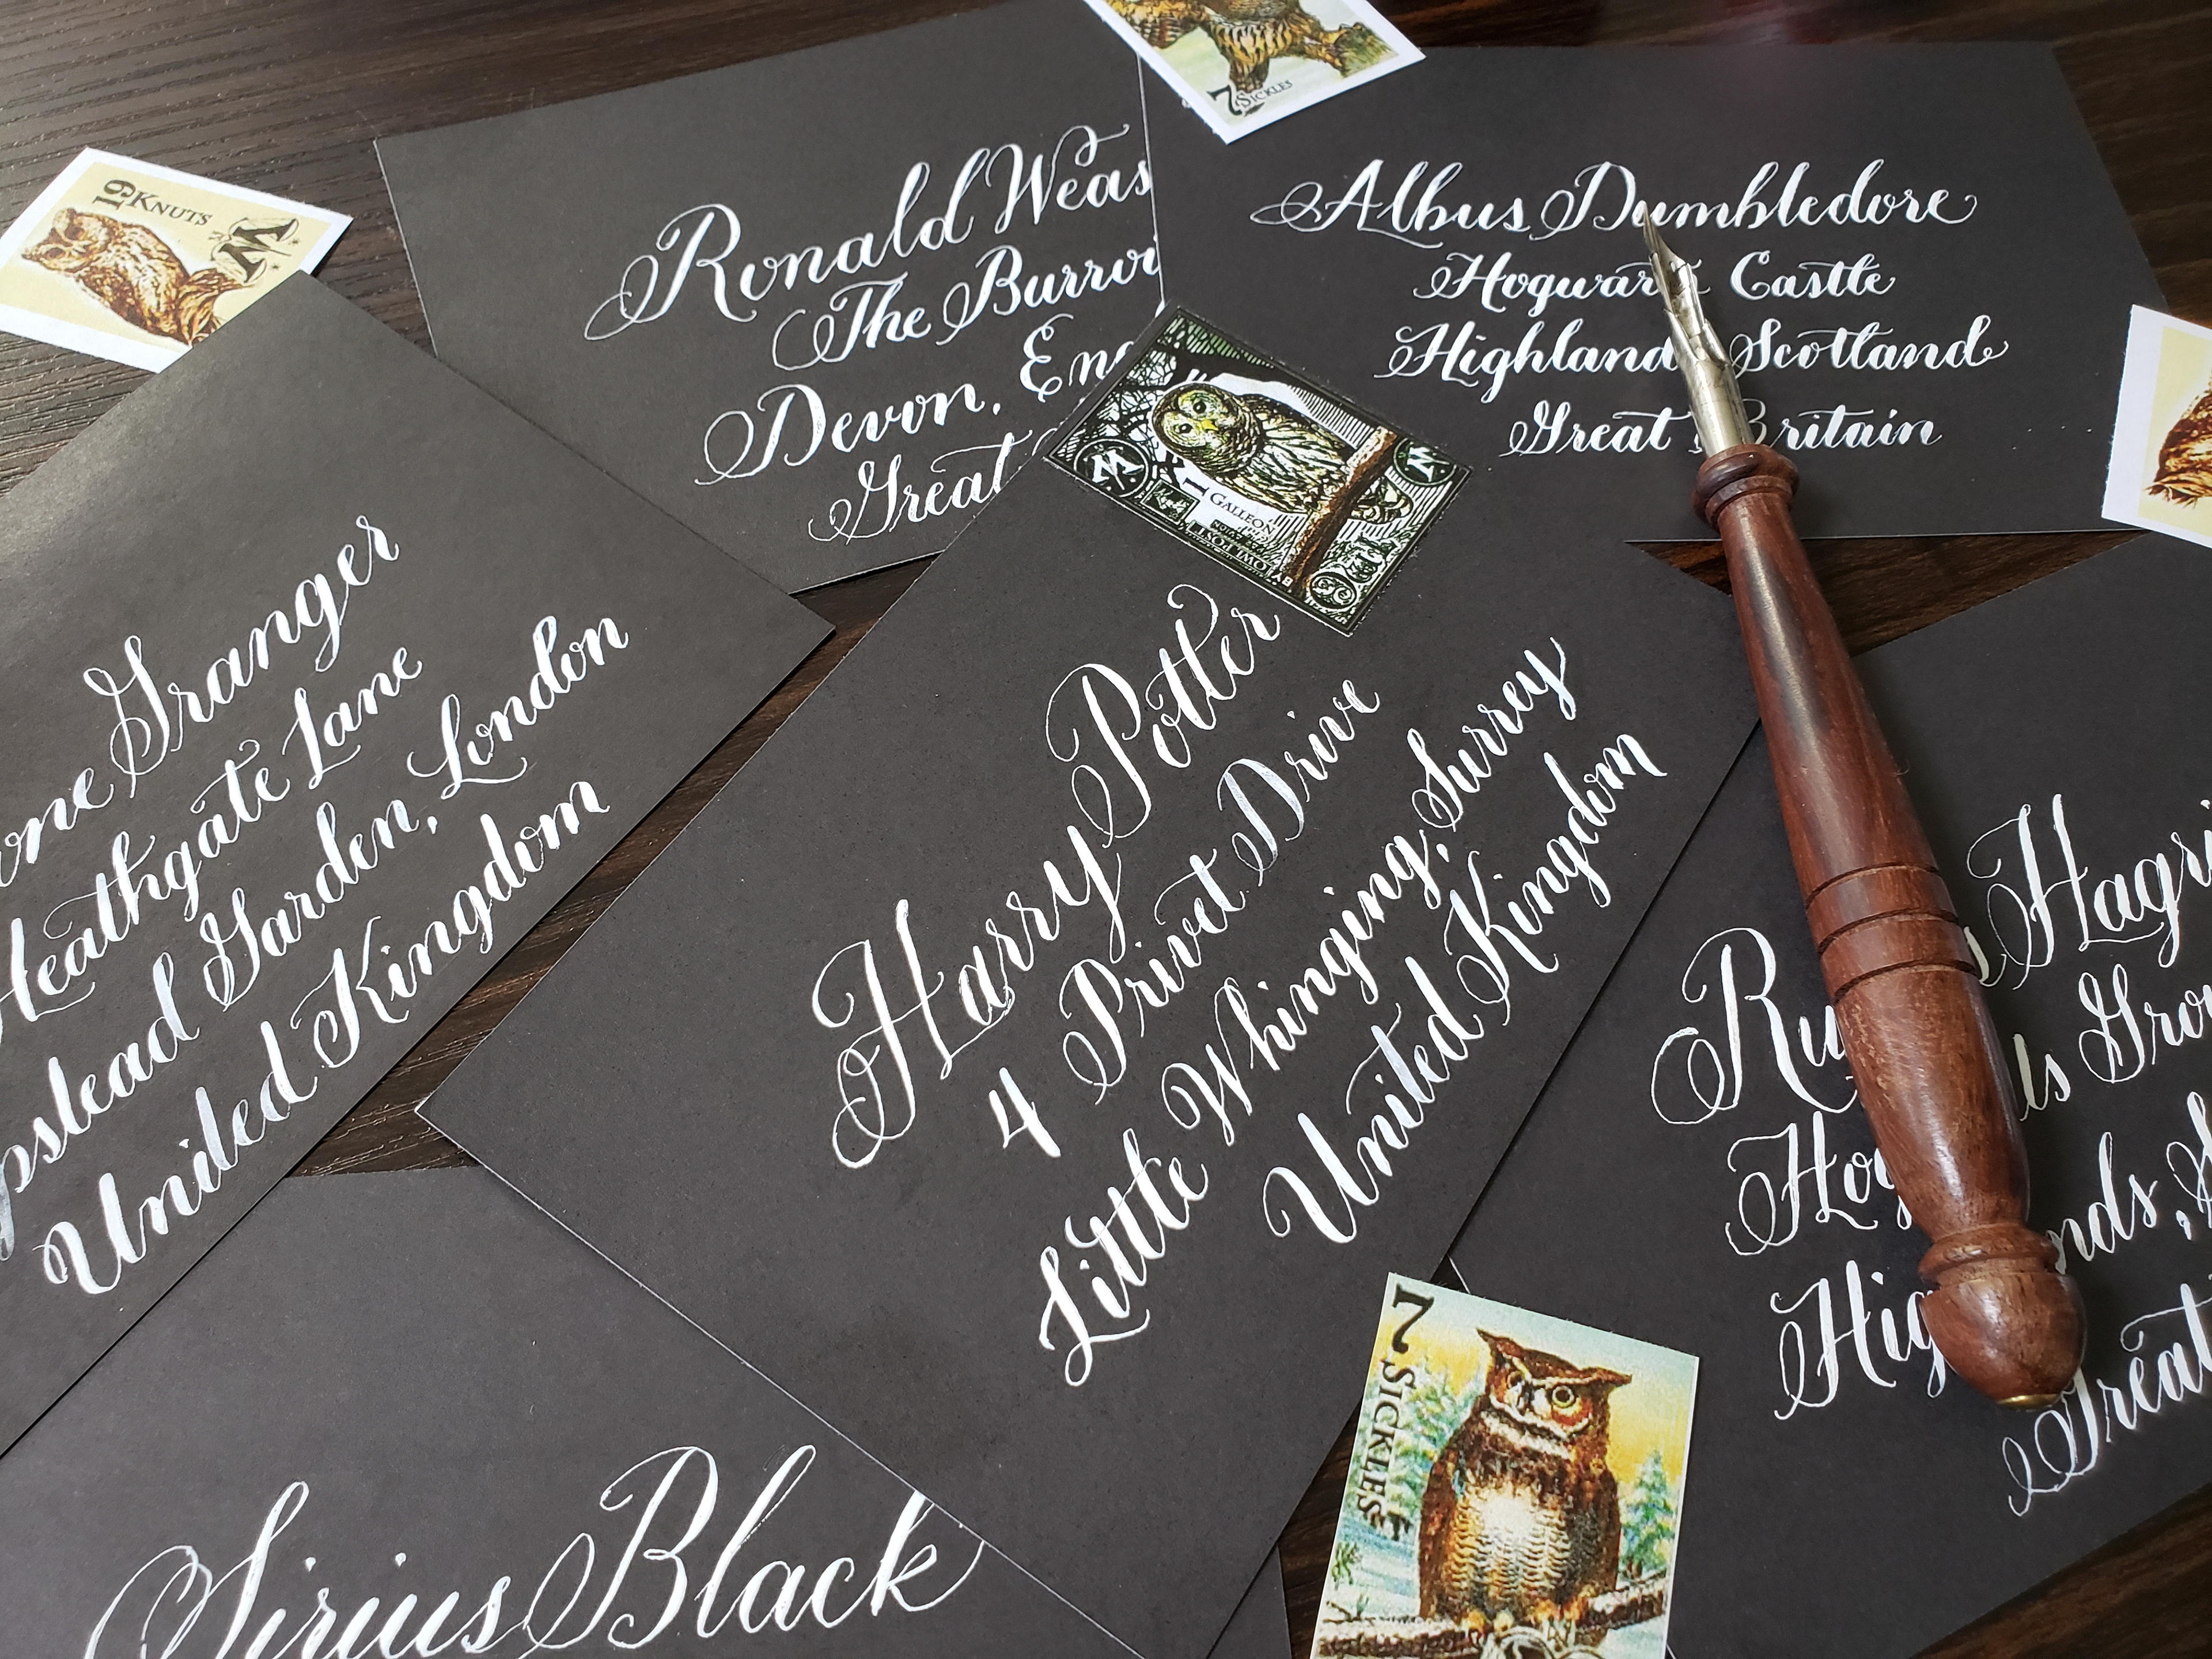 19 KNUTS
W
7 SICKLES
Ronald Weas
The Burro
Devon, Eng
Great
Albus Dumbledore
Castle
Highland Scotland
Great Britain
W
W
1
GALLEON
OWL POST
Granger
Heathgate Lane
pstead Garden, London
United Kingdom
Harry Potter
4 Privet Drive
Little Whinging, Surrey
United Kingdom
Ru Hagri
Hog ls Gro
Hig nds, S
Great
Sirius Black
7 SICKLES